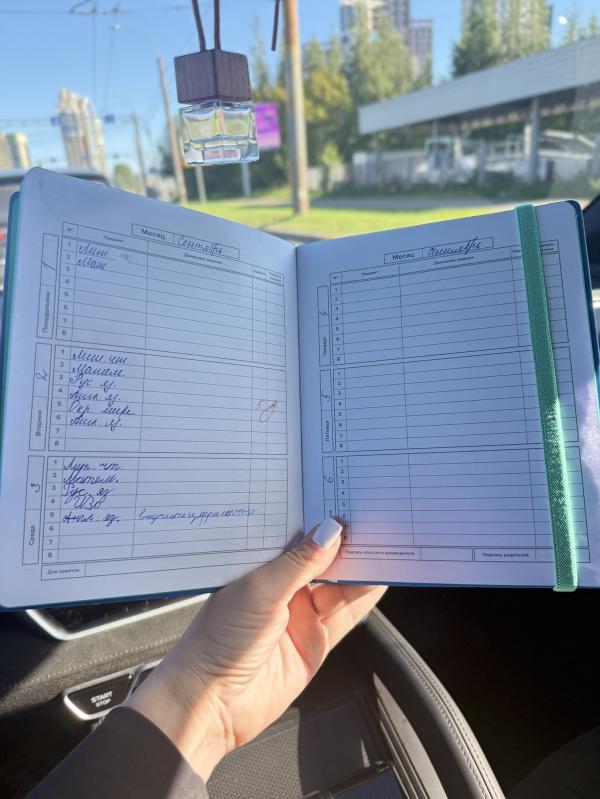 Месяц Сентябрь
№ Предмет Домашнее задание
1
Понедельник
1 Лит.
2 Мат
3
4
5
6
7
8
2
Вторник
1 Лит. чт.
2 Матем.
3 Рус яз.
4 яз.
5 Окр. мир 5
6 Англ. яз.
7
8
3
Среда
1 Лит. чт.
2 Матем.
3 Рус. яз.
4 ИЗО
5 Англ. яз. выучить цифры
6
7
8
Для заметок
Месяц Сентябрь
№ Предмет Домашнее задание
4
Четверг
1
2
3
4
5
6
7
8
5
Пятница
1
2
3
4
5
6
7
8
6
1
2
3
4
5
Подпись классного руководителя Подпись родителей
START
STOP